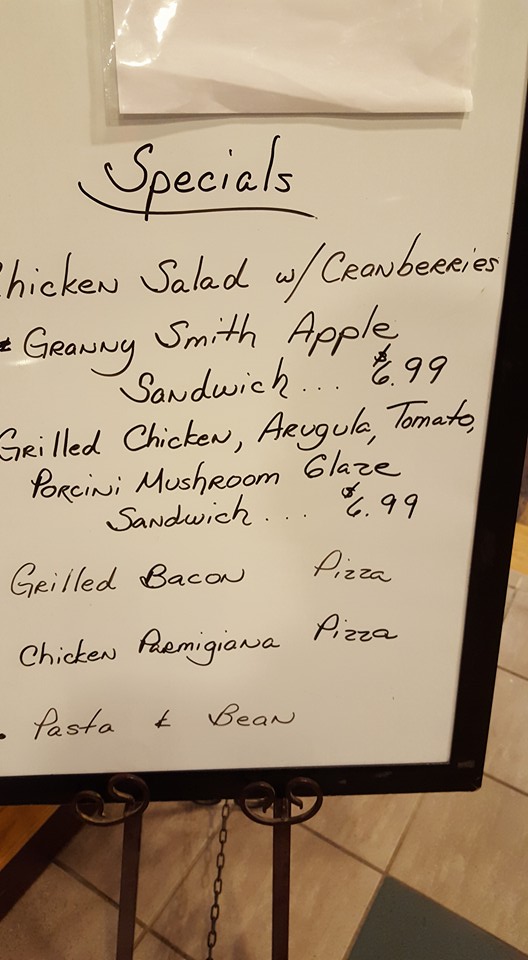 Specials
Chicken Salad w/ Cranberries
& Granny Smith Apple
Sandwich... $6.99
Grilled Chicken, Arugula, Tomato,
Porcini Mushroom Glaze
Sandwich.... $6.99
Grilled Bacon Pizza
Chicken Parmigiana Pizza
. Pasta & Bean